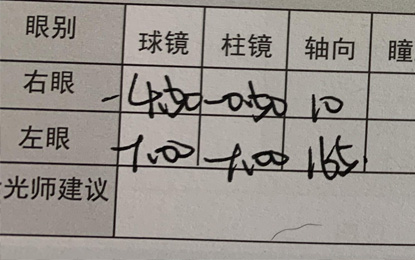 眼别 球镜 柱镜 轴向 瞳
右眼 -4.50 -0.50 10
左眼 -1.00 -1.00 165
光师建议